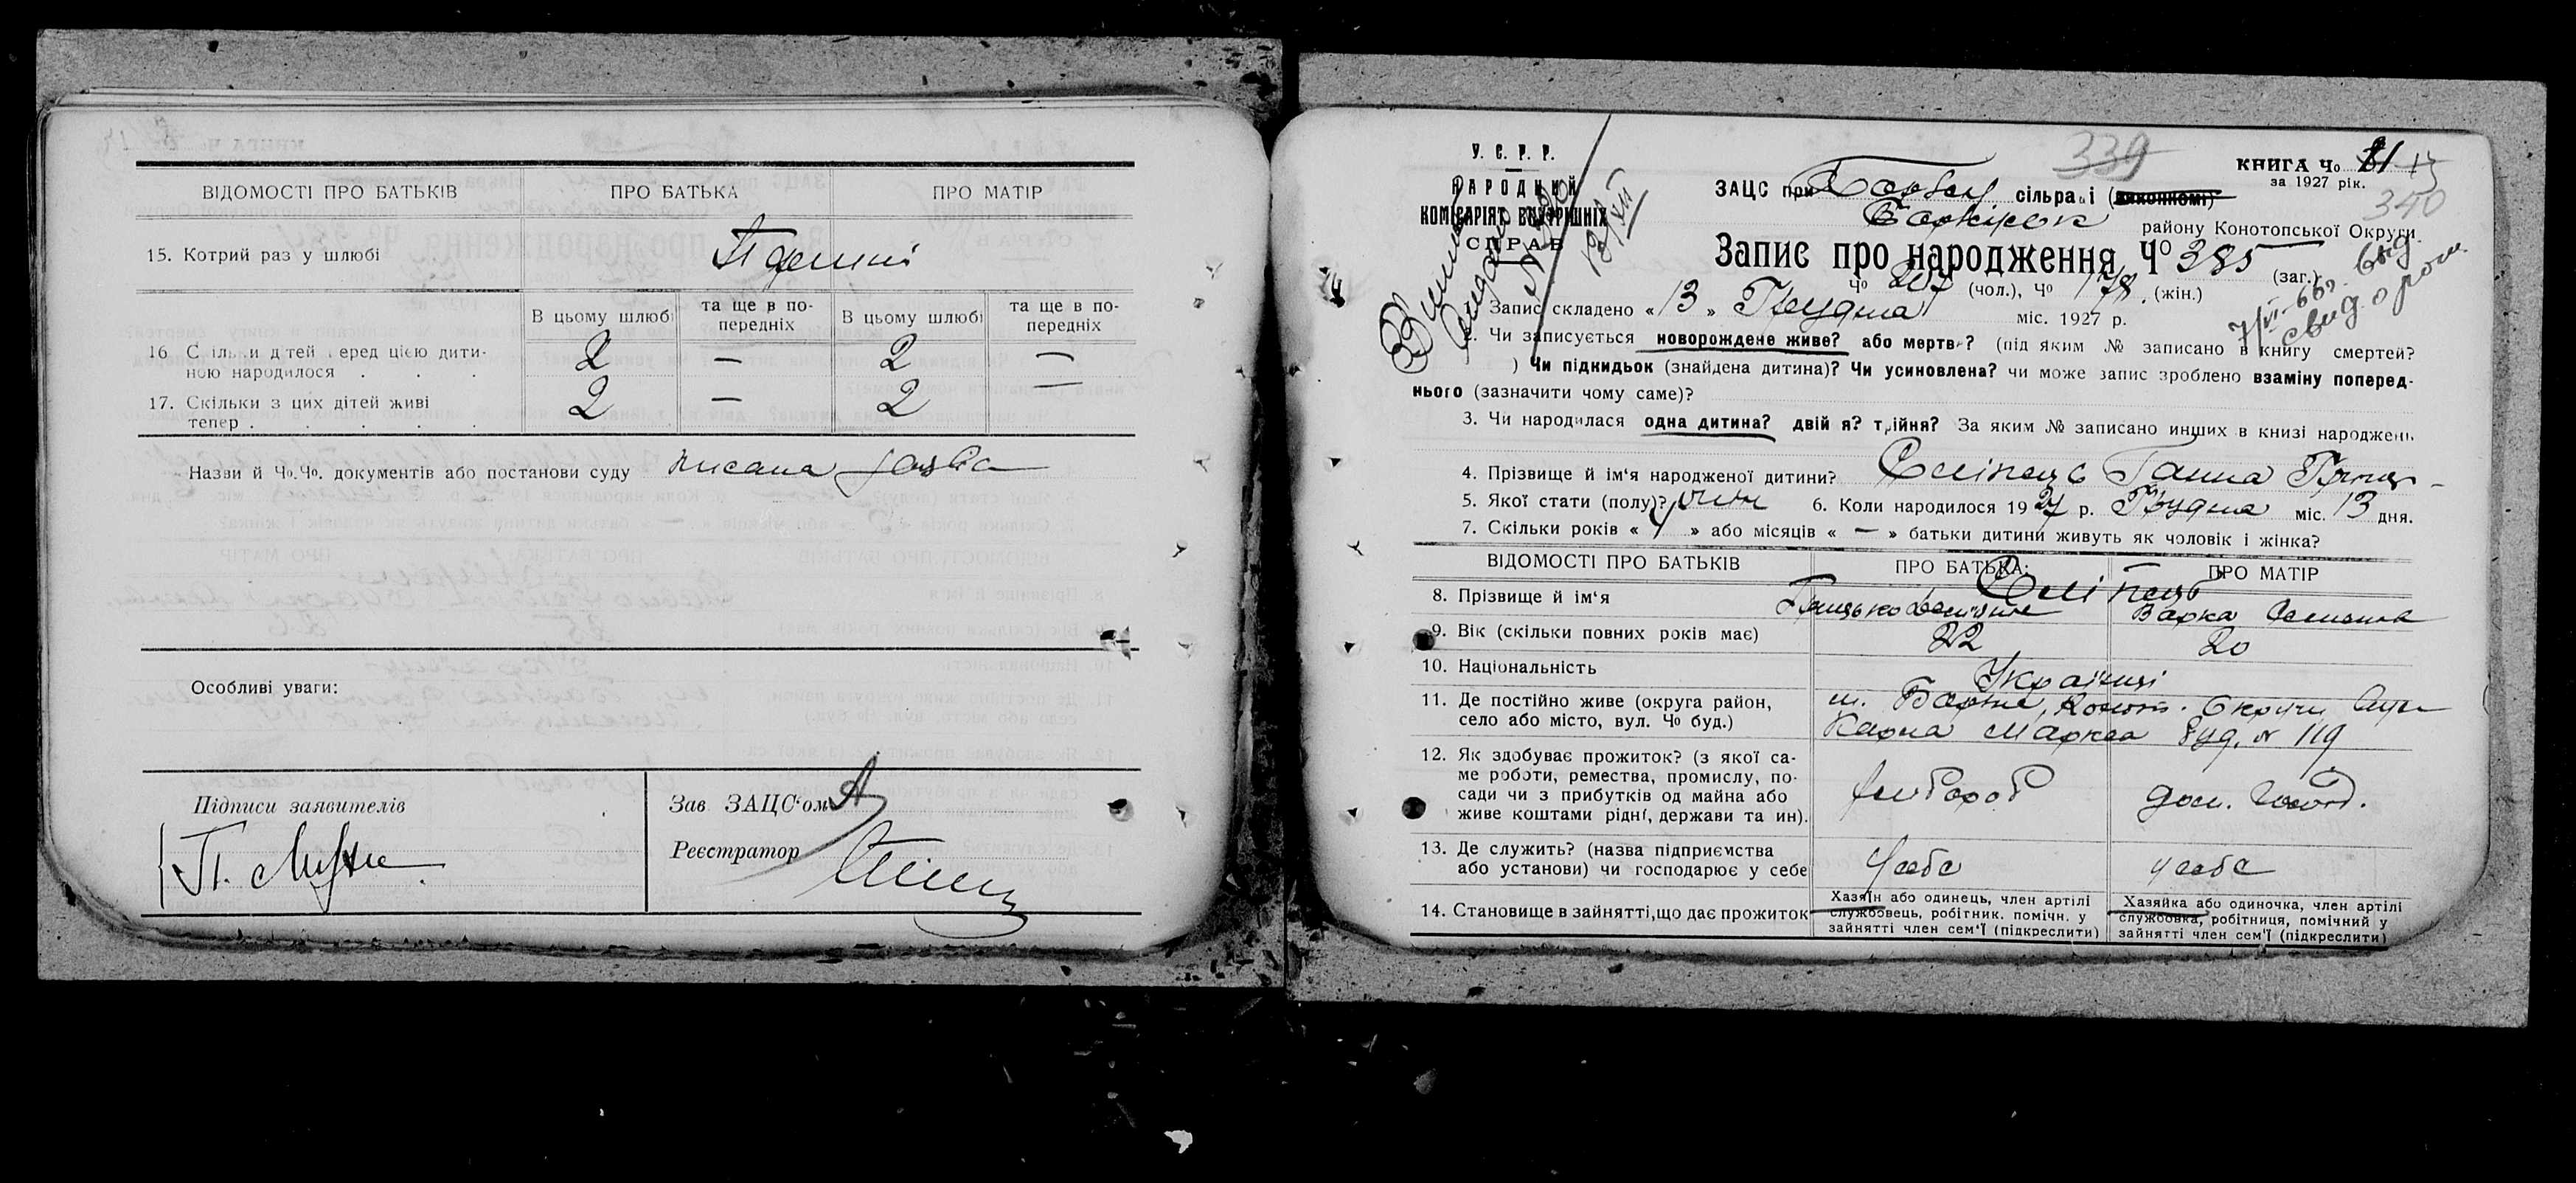 ВІДОМОСТІ ПРО БАТЬКІВ ПРО БАТЬКА ПРО МАТІР
15. Котрий раз у шлюбі
В цьому шлюбі та ще в по-передніх В цьому шлюбі та ще в по-передніх
16. Скільки дітей перед цією дити-
ною народилося . . . 2 — 2 —
17. Скільки з цих дітей живі
тепер . . . . . 2 — 2 —
Назви й Чо.Чо. документів або постанови суду
Особливі уваги:
Підписи заявителів
Зав. ЗАЦС'ом
Реєстратор
У. С. Р. Р.
НАРОДНИЙ
КОМІСАРІЯТ ВНУТРІШНІХ
СПРАВ
13/XII
339
КНИГА Чо 21
за 1927 рік.
340
ЗАЦС при сільраді (виконкомі)
району Конотопської Округи
Запис про народження Чо 385 (заг.)
Чо 207 (чол.), Чо 178, (жін.)
7/VI-66г. выд.
свид. о рожд.
Запис складено « 13 » Грудня міс. 1927 р.
2. Чи записується новорождене живе? або мертве? (під яким № записано в книгу смертей?
) Чи підкидьок (знайдена дитина)? Чи усиновлена? чи може запис зроблено взаміну поперед-
нього (зазначити чому саме)?
3. Чи народилася одна дитина? двійня? трійня? За яким № записано инших в книзі народжень
4. Прізвище й ім'я народженої дитини? Сліпець Ганна Гриць-
5. Якої стати (полу)? жін 6. Коли народилося 1927 р. Грудня міс. 13 дня.
7. Скільки років « 4 » або місяців « — » батьки дитини живуть як чоловік і жінка?
ВІДОМОСТІ ПРО БАТЬКІВ ПРО БАТЬКА: ПРО МАТІР
Сліпець
8. Прізвище й ім'я Грицько Варка
9. Вік (скільки повних років має) 22 20
10. Національність Українці
11. Де постійно живе (округа район, м. Конот. Округи
село або місто, вул. Чо буд.) Карла Маркса буд. № 119
12. Як здобуває прожиток? (з якої са-
ме роботи, ремества, промислу, по-
сади чи з прибутків од майна або
живе коштами рідні, держави та ин). хлібороб дом. господ.
13. Де служить? (назва підприємства
або установи) чи господарює у себе У себе у себе
14. Становище в зайнятті, що дає прожиток
Хазяїн або одинець, член артілі
службовець, робітник. помічн. у
зайнятті член сем'ї (підкреслити)
Хазяйка або одиночка, член артілі
службовка, робітниця, помічний у
зайнятті член сем'ї (підкреслити)